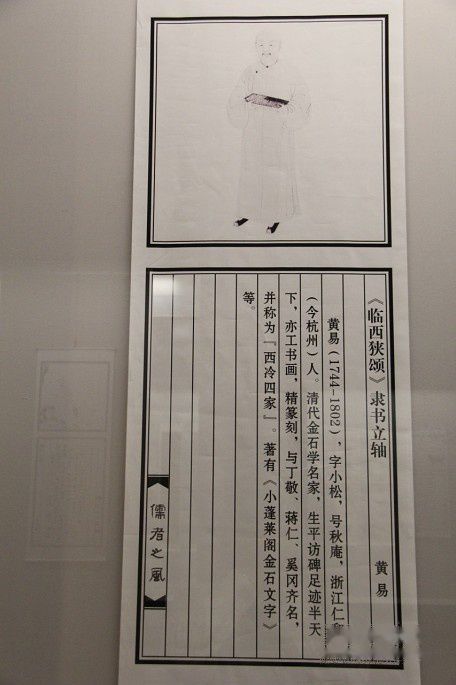 《临西狭颂》隶书立轴
黄易
黄易(1744-1802),字小松,号秋庵,浙江仁
(今杭州)人。清代金石学名家,生平访碑足迹半天
下,亦工书画,精篆刻,与丁敬、蒋仁、奚冈齐名,
并称为『西泠四家』。著有《小蓬莱阁金石文字》
等。
儒者之风